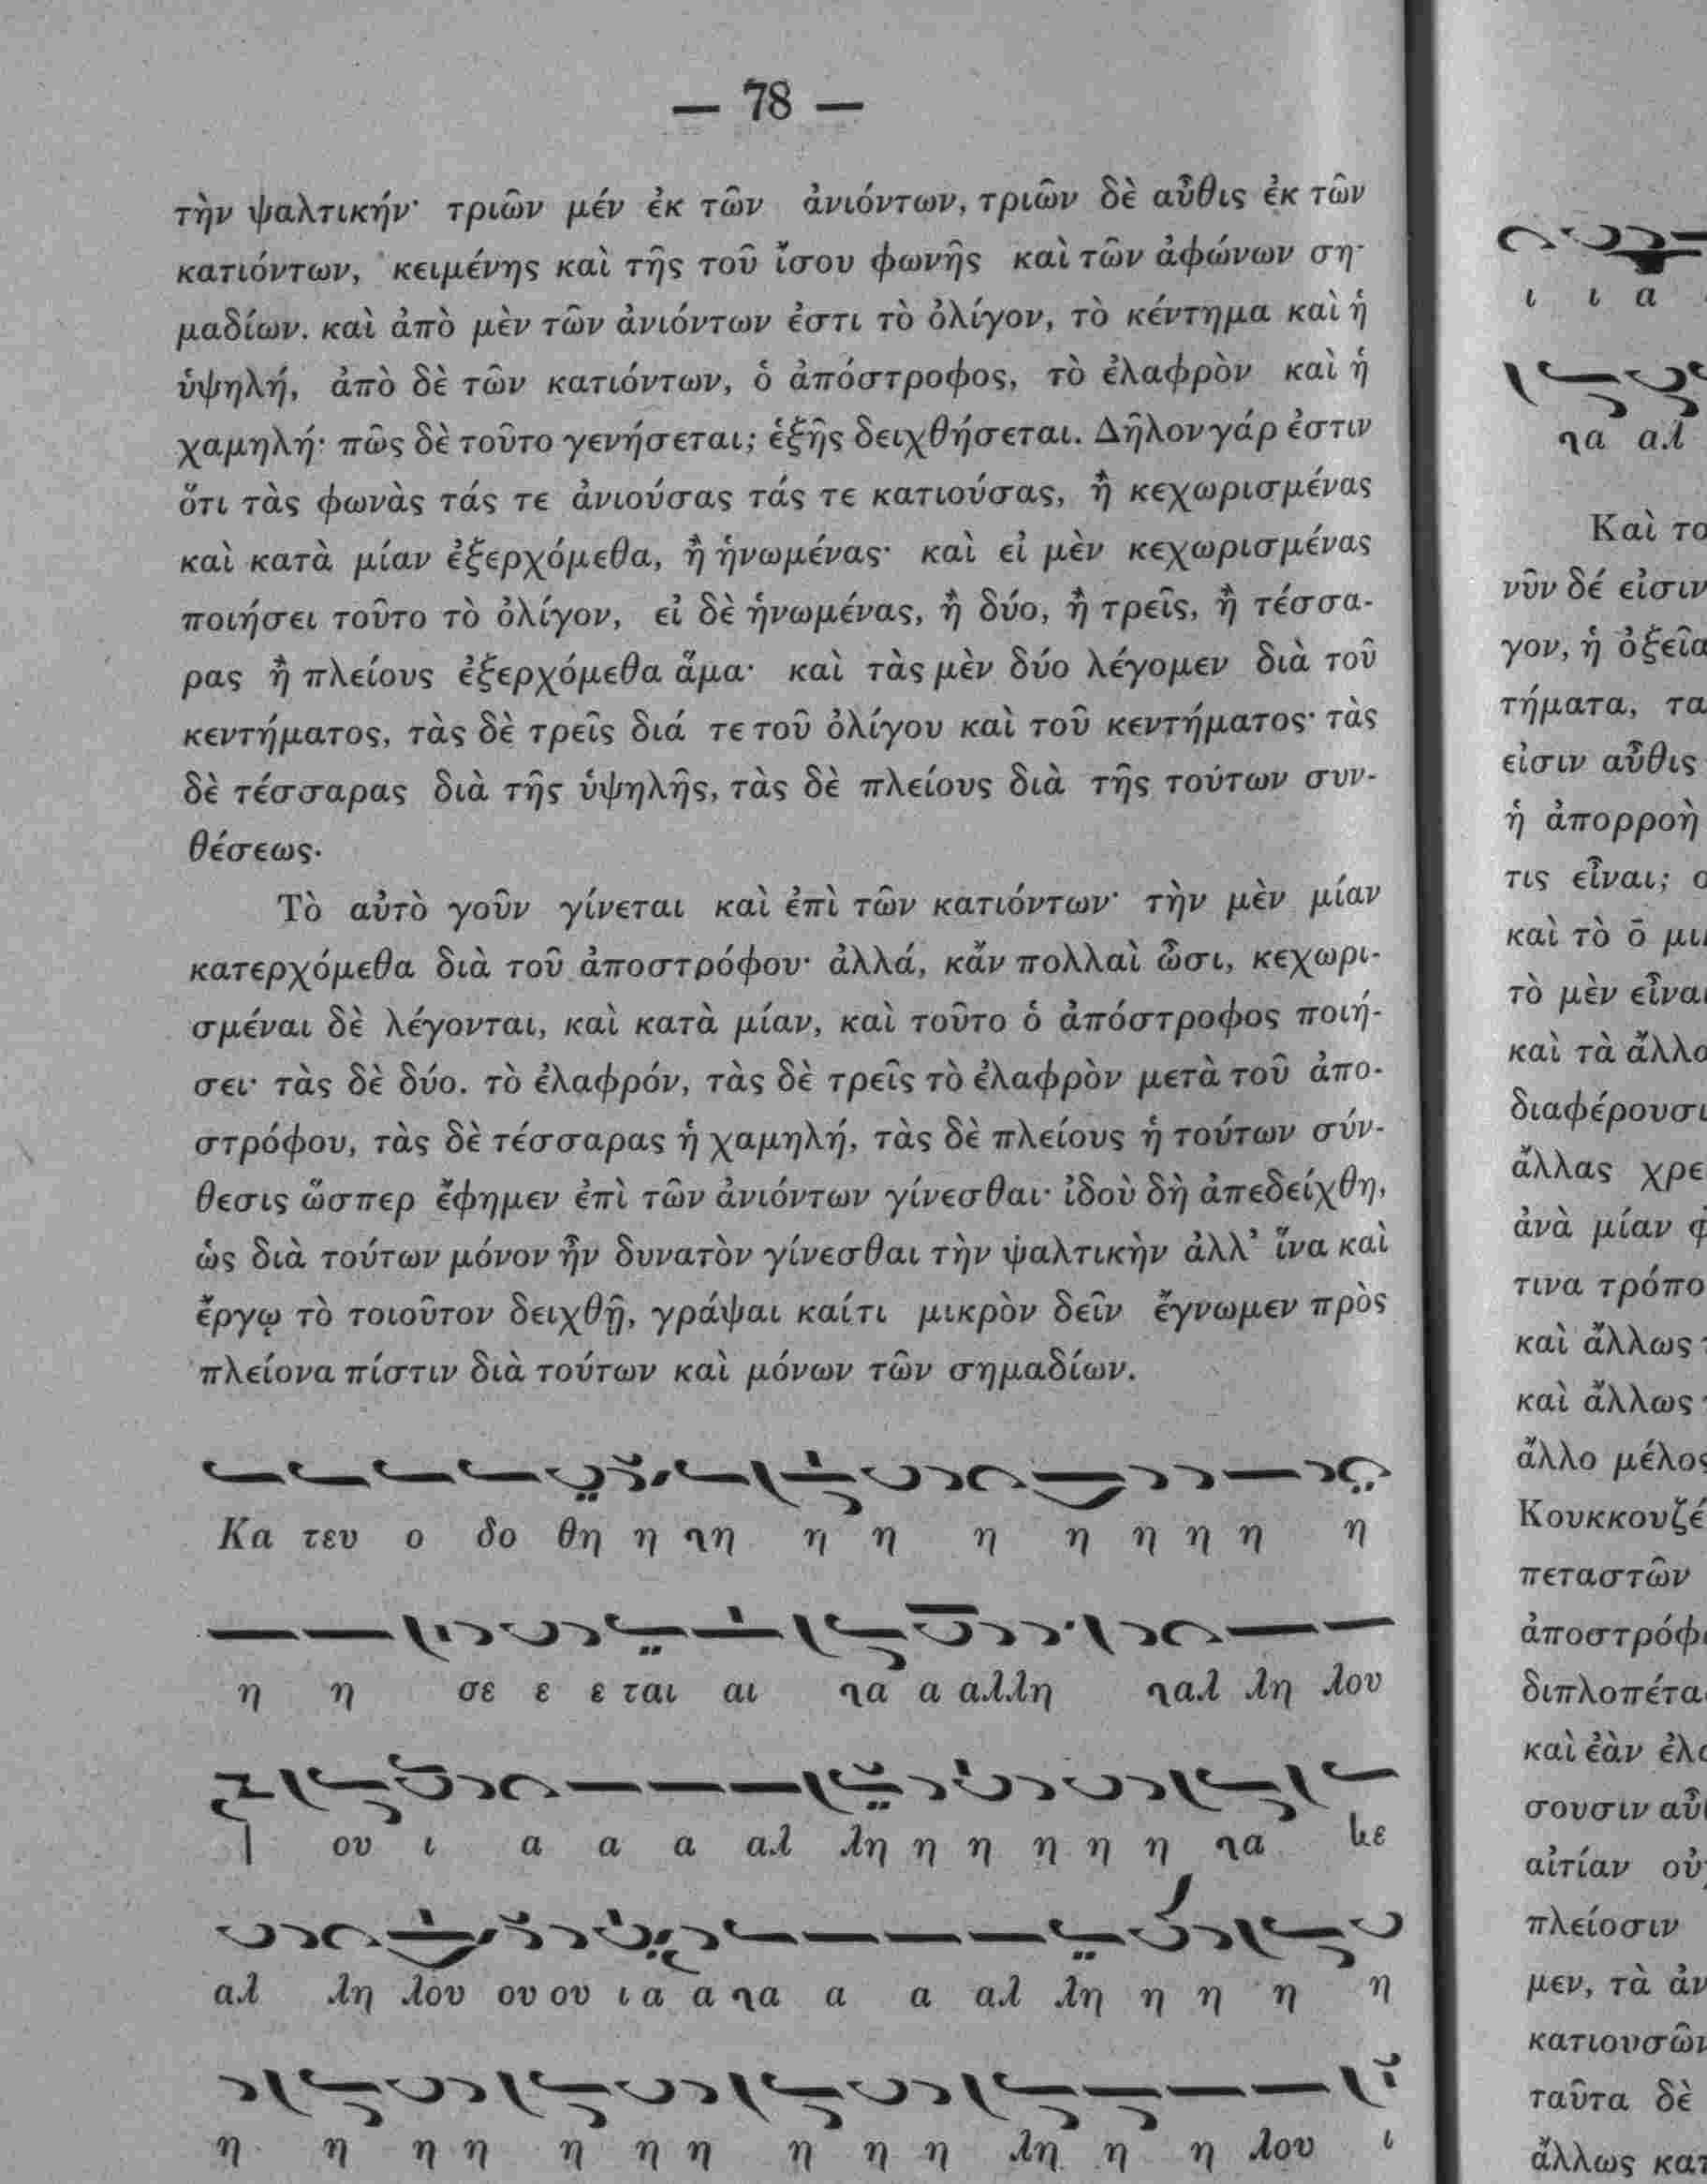 — 78 —
τὴν ψαλτικήν· τριῶν μέν ἐκ τῶν ἀνιόντων, τριῶν δὲ αὖθις ἐκ τῶν
κατιόντων, κειμένης καὶ τῆς τοῦ ἴσου φωνῆς καὶ τῶν ἀφώνων ση-
μαδίων. καὶ ἀπὸ μὲν τῶν ἀνιόντων ἐστι τὸ ὀλίγον, τὸ κέντημα καὶ ἡ
ὑψηλή, ἀπὸ δὲ τῶν κατιόντων, ὁ ἀπόστροφος, τὸ ἐλαφρὸν καὶ ἡ
χαμηλή· πῶς δὲ τοῦτο γενήσεται; ἑξῆς δειχθήσεται. Δῆλον γάρ ἐστιν
ὅτι τὰς φωνὰς τάς τε ἀνιούσας τάς τε κατιούσας, ἢ κεχωρισμένας
καὶ κατὰ μίαν ἐξερχόμεθα, ἢ ἡνωμένας· καὶ εἰ μὲν κεχωρισμένας
ποιήσει τοῦτο τὸ ὀλίγον, εἰ δὲ ἡνωμένας, ἢ δύο, ἢ τρεῖς, ἢ τέσσα-
ρας ἢ πλείους ἐξερχόμεθα ἅμα· καὶ τὰς μὲν δύο λέγομεν διὰ τοῦ
κεντήματος, τὰς δὲ τρεῖς διά τε τοῦ ὀλίγου καὶ τοῦ κεντήματος· τὰς
δὲ τέσσαρας διὰ τῆς ὑψηλῆς, τὰς δὲ πλείους διὰ τῆς τούτων συν-
θέσεως.
Τὸ αὐτὸ γοῦν γίνεται καὶ ἐπὶ τῶν κατιόντων· τὴν μὲν μίαν
κατερχόμεθα διὰ τοῦ ἀποστρόφου· ἀλλά, κἄν πολλαὶ ὦσι, κεχωρι-
σμέναι δὲ λέγονται, καὶ κατὰ μίαν, καὶ τοῦτο ὁ ἀπόστροφος ποιή-
σει· τὰς δὲ δύο. τὸ ἐλαφρόν, τὰς δὲ τρεῖς τὸ ἐλαφρὸν μετὰ τοῦ ἀπο-
στρόφου, τὰς δὲ τέσσαρας ἡ χαμηλή, τὰς δὲ πλείους ἡ τούτων σύν-
θεσις ὥσπερ ἔφημεν ἐπὶ τῶν ἀνιόντων γίνεσθαι· ἰδοὺ δὴ ἀπεδείχθη,
ὡς διὰ τούτων μόνον ἦν δυνατὸν γίνεσθαι τὴν ψαλτικὴν ἀλλ’ ἵνα καὶ
ἔργῳ τὸ τοιοῦτον δειχθῇ, γράψαι καίτι μικρὸν δεῖν ἔγνωμεν πρὸς
πλείονα πίστιν διὰ τούτων καὶ μόνων τῶν σημαδίων.
Κα τευ ο δο θη η ϟη η η η η η η η η
η η σε ε ε ται αι ϟα α αλλη ϟαλ λη λου
ου ι α α α αλ λη η η η η η ϟα κε
αλ λη λου ου ου ι α α ϟα α α αλ λη η η η η
η η η η η η η η η η λη η η λου ι
ι ι α
ϟα αλ
Καὶ το
νῦν δέ εἰσιν
γον, ἡ ὀξεῖα
τήματα, τα
εἰσιν αὖθις
ἡ ἀπορροὴ
τις εἶναι;
καὶ τὸ ὂ
τὸ μὲν εἶναι
καὶ τὰ ἄλλα
διαφέρουσι
ἄλλας χρε
ἀνὰ μίαν φ
τινα τρόπο
καὶ ἄλλως
καὶ ἄλλως
ἄλλο μέλος
Κουκκουζέ
πεταστῶν
ἀποστρόφ
διπλοπέτα
καὶ ἐὰν ἐλ
σουσιν αὖ
αἰτίαν οὐ
πλείοσιν
μεν, τὰ ἀν
κατιουσῶν
ταῦτα δὲ
ἄλλως κα